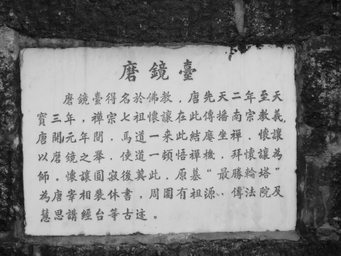 磨鏡臺
唐磨鏡臺得名於佛教，唐先天二年至天
寶三年，禪宗七祖懷讓在此傳播南宗教義，
唐開元年間，馬道一來此結庵坐禪，懷讓
以磨鏡之舉，使道一頓悟禪機，拜懷讓為
師。懷讓圓寂後葬此，原墓“最勝輪塔”
為唐宰相裴休書，周圍有祖源、傳法院及
慧思講經台等古迹。